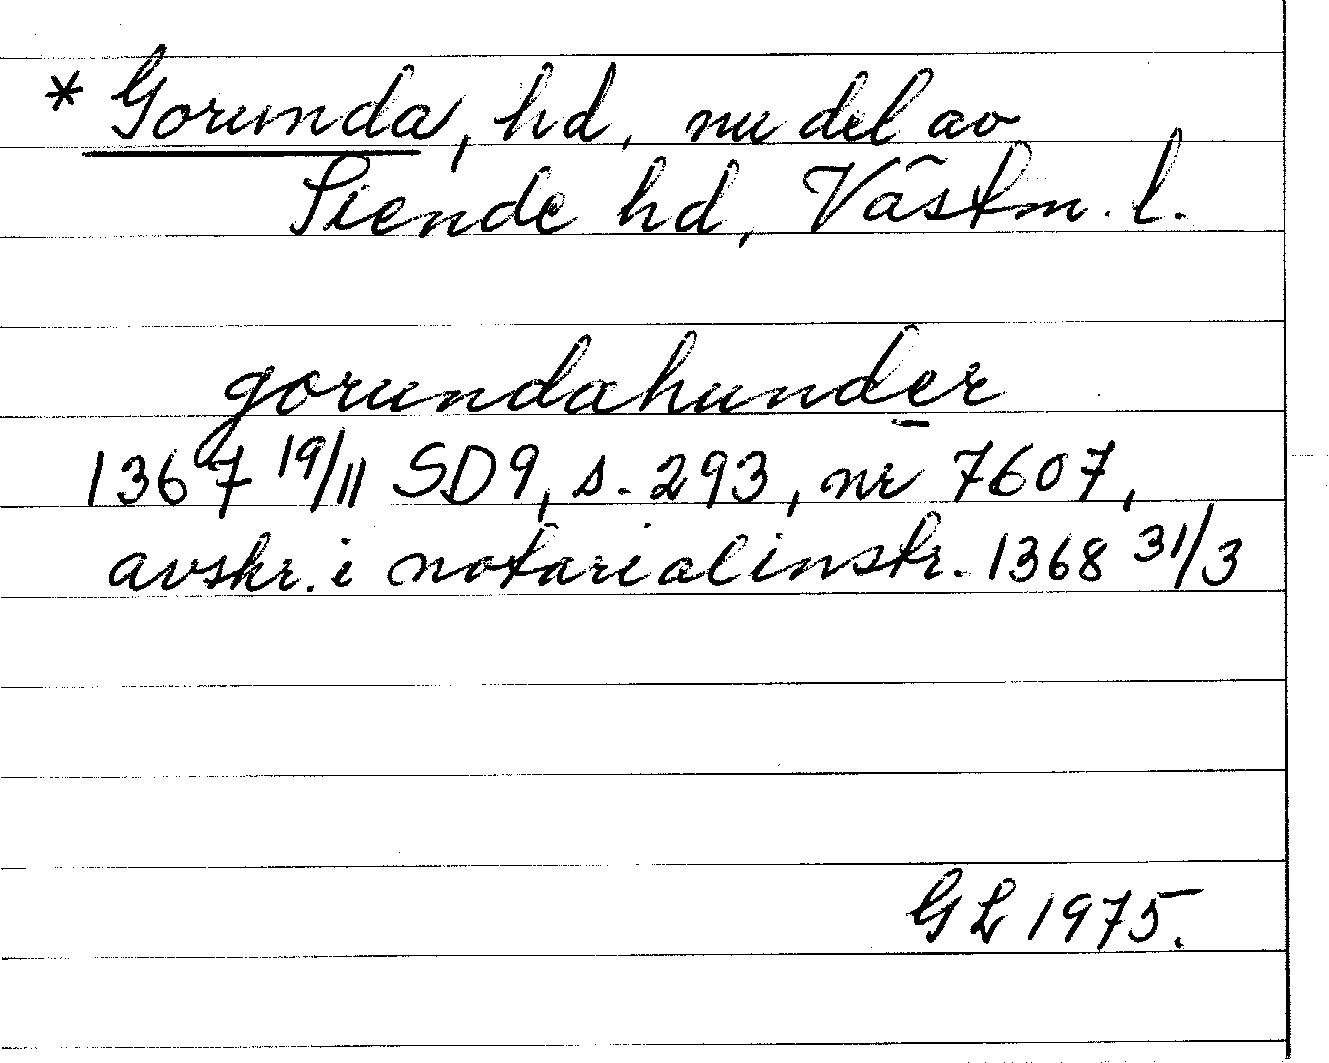 * Gorunda, hd, nu del av
Siende hd, Västm. l.
gorundahunder
1367 19/11 SD 9, s. 293, nr 7607,
avskr. i notarialinstr. 1368 31/3
GL 1975.